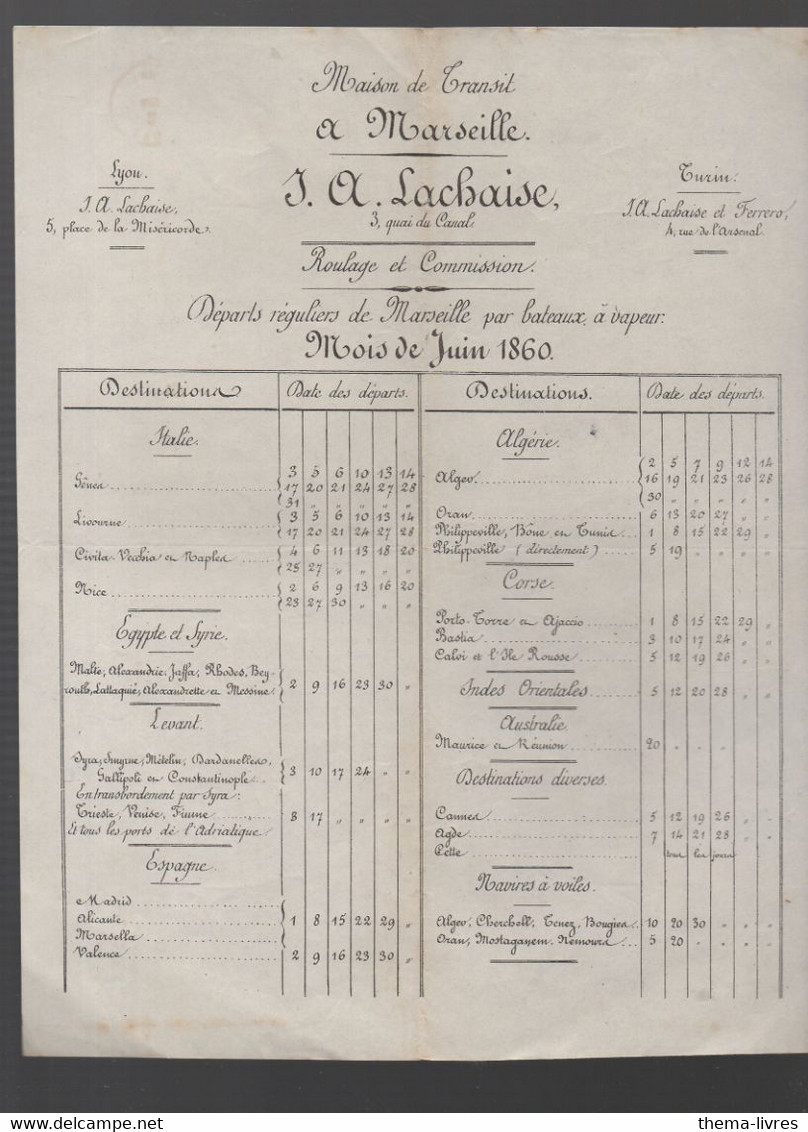 Maison de Transit
a Marseille.
J. A. Lachaise,
3, quai du Canal.
Lyon.
J. A. Lachaise,
5, place de la Miséricorde.
Turin.
J. A. Lachaise et Ferrero,
4, rue de l'Arsenal.
Roulage et Commission.
Départs réguliers de Marseille par bateaux à vapeur:
Mois de Juin 1860.
Destinations Date des départs.
Italie.
Gênes 3 5 6 10 13 14
17 20 21 24 27 28
31 " " " " "
Livourne 3 5 6 10 13 14
17 20 21 24 27 28
Civita Vecchia et Naples 4 6 11 13 18 20
25 27 " " " "
Nice 2 6 9 13 16 20
23 27 30 " " "
Egypte et Syrie.
Malte, Alexandrie, Jaffa, Rhodes, Bey-
routh, Lattaquié, Alexandrette et Messine 2 9 16 23 30 "
Levant.
Syra, Smyrne, Mételin, Dardanelles,
Gallipoli et Constantinople 3 10 17 24 " "
En transbordement par Syra:
Trieste, Venise, Fiume 8 17 " " " "
Et tous les ports de l'Adriatique
Espagne.
Madrid
Alicante 1 8 15 22 29 "
Marsella
Valence 2 9 16 23 30 "
Destinations. Date des départs.
Algérie.
Alger 2 5 7 9 12 14
16 19 21 23 26 28
30 " " " " "
Oran 6 13 20 27 " "
Philippeville, Bône et Tunis 1 8 15 22 29 "
Philippeville (directement) 5 19 " " " "
Corse.
Porto-Torre et Ajaccio 1 8 15 22 29 "
Bastia 3 10 17 24 " "
Calvi et l'Ile Rousse 5 12 19 26 " "
Indes Orientales 5 12 20 28 " "
Australie
Maurice et Réunion 20 " " " " "
Destinations diverses.
Cannes 5 12 19 26 " "
Agde 7 14 21 28 " "
Cette tous les jours
Navires à voiles.
Alger, Cherchell, Tenez, Bougies 10 20 30 " " "
Oran, Mostaganem, Nemours 5 20 " " " "
www.delcampe.net
thema-livres